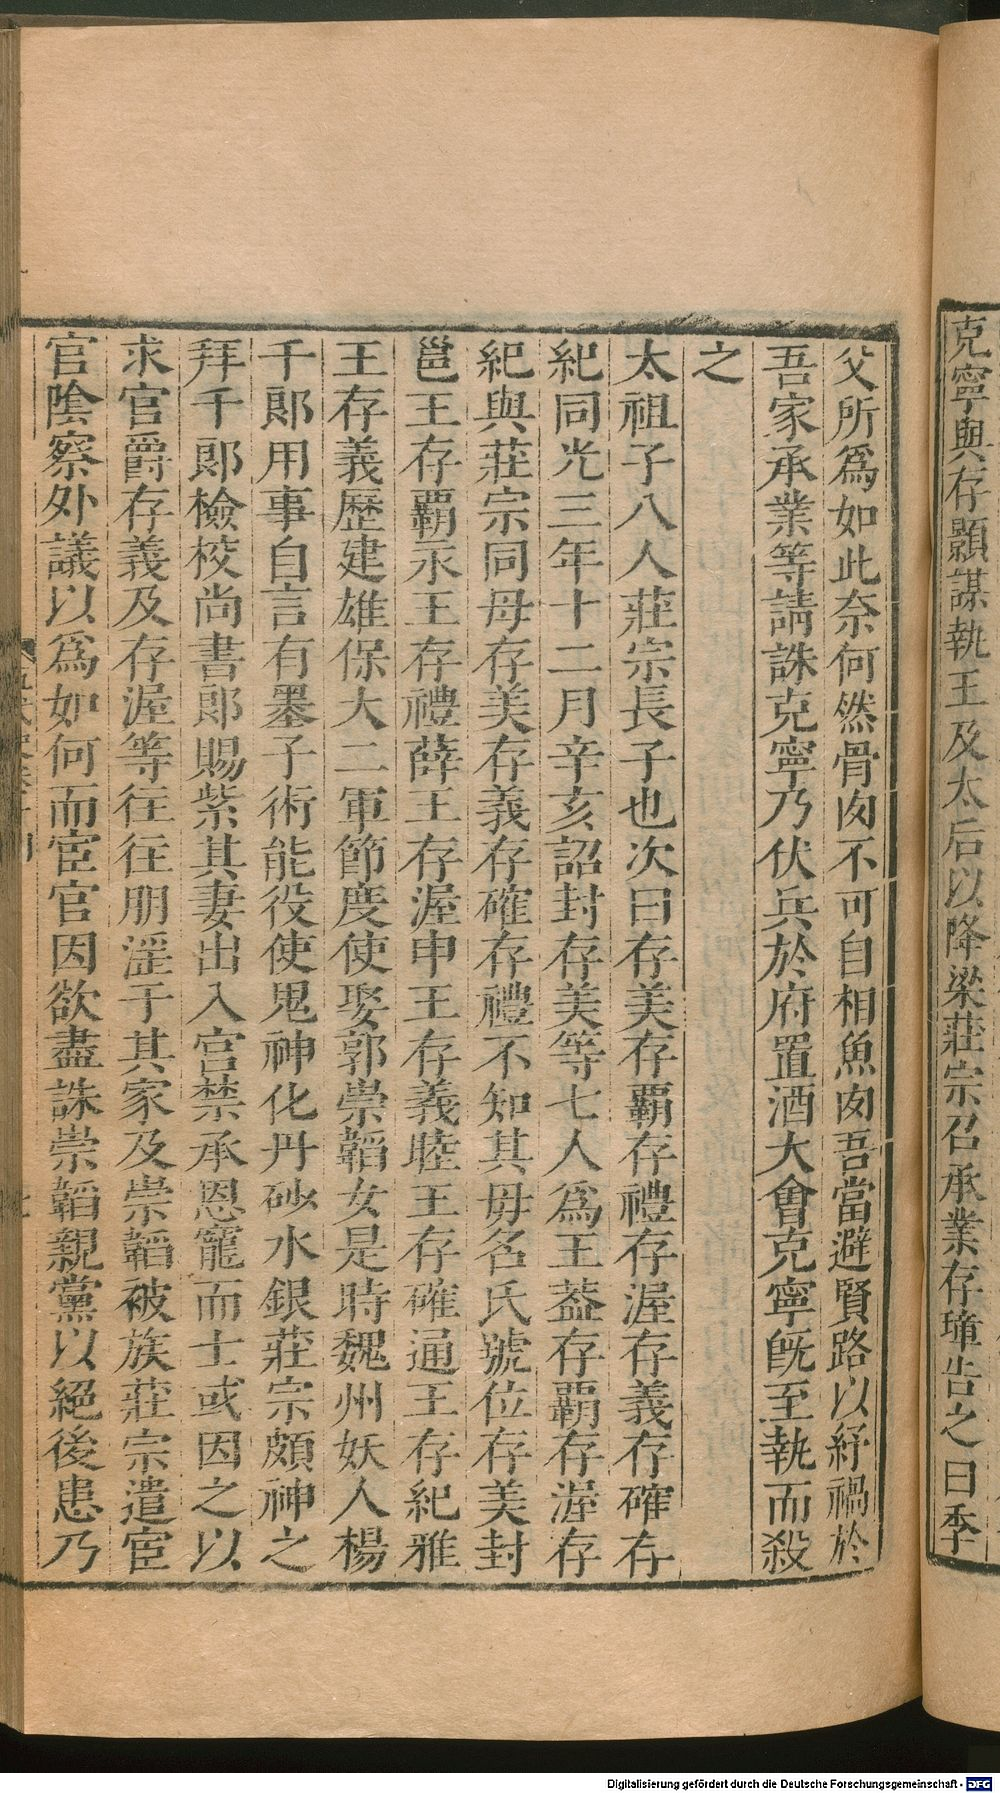 克寧與存顥謀執王及太后以降梁莊宗召承業存璋告之曰季
父所爲如此奈何然骨肉不可自相魚肉吾當避賢路以紓禍於
吾家承業等請誅克寧乃伏兵於府置酒大會克寧旣至執而殺
之
太祖子八人莊宗長子也次曰存美存霸存禮存渥存義存確存
紀同光三年十二月辛亥詔封存美等七人爲王葢存霸存渥存
紀與莊宗同母存美存義存確存禮不知其母名氏號位存美封
邕王存霸永王存禮薛王存渥申王存義睦王存確通王存紀雅
王存義歷建雄保大二軍節度使娶郭崇韜女是時魏州妖人楊
千郎用事自言有墨子術能役使鬼神化丹砂水銀莊宗頗神之
拜千郎檢校尚書郎賜紫其妻出入宫禁承恩寵而士或因之以
求官爵存義及存渥等往往朋淫于其家及崇韜被族莊宗遣宦
官陰察外議以爲如何而宦官因欲盡誅崇韜親黨以絕後患乃
Digitalisierung gefördert durch die Deutsche Forschungsgemeinschaft - DFG